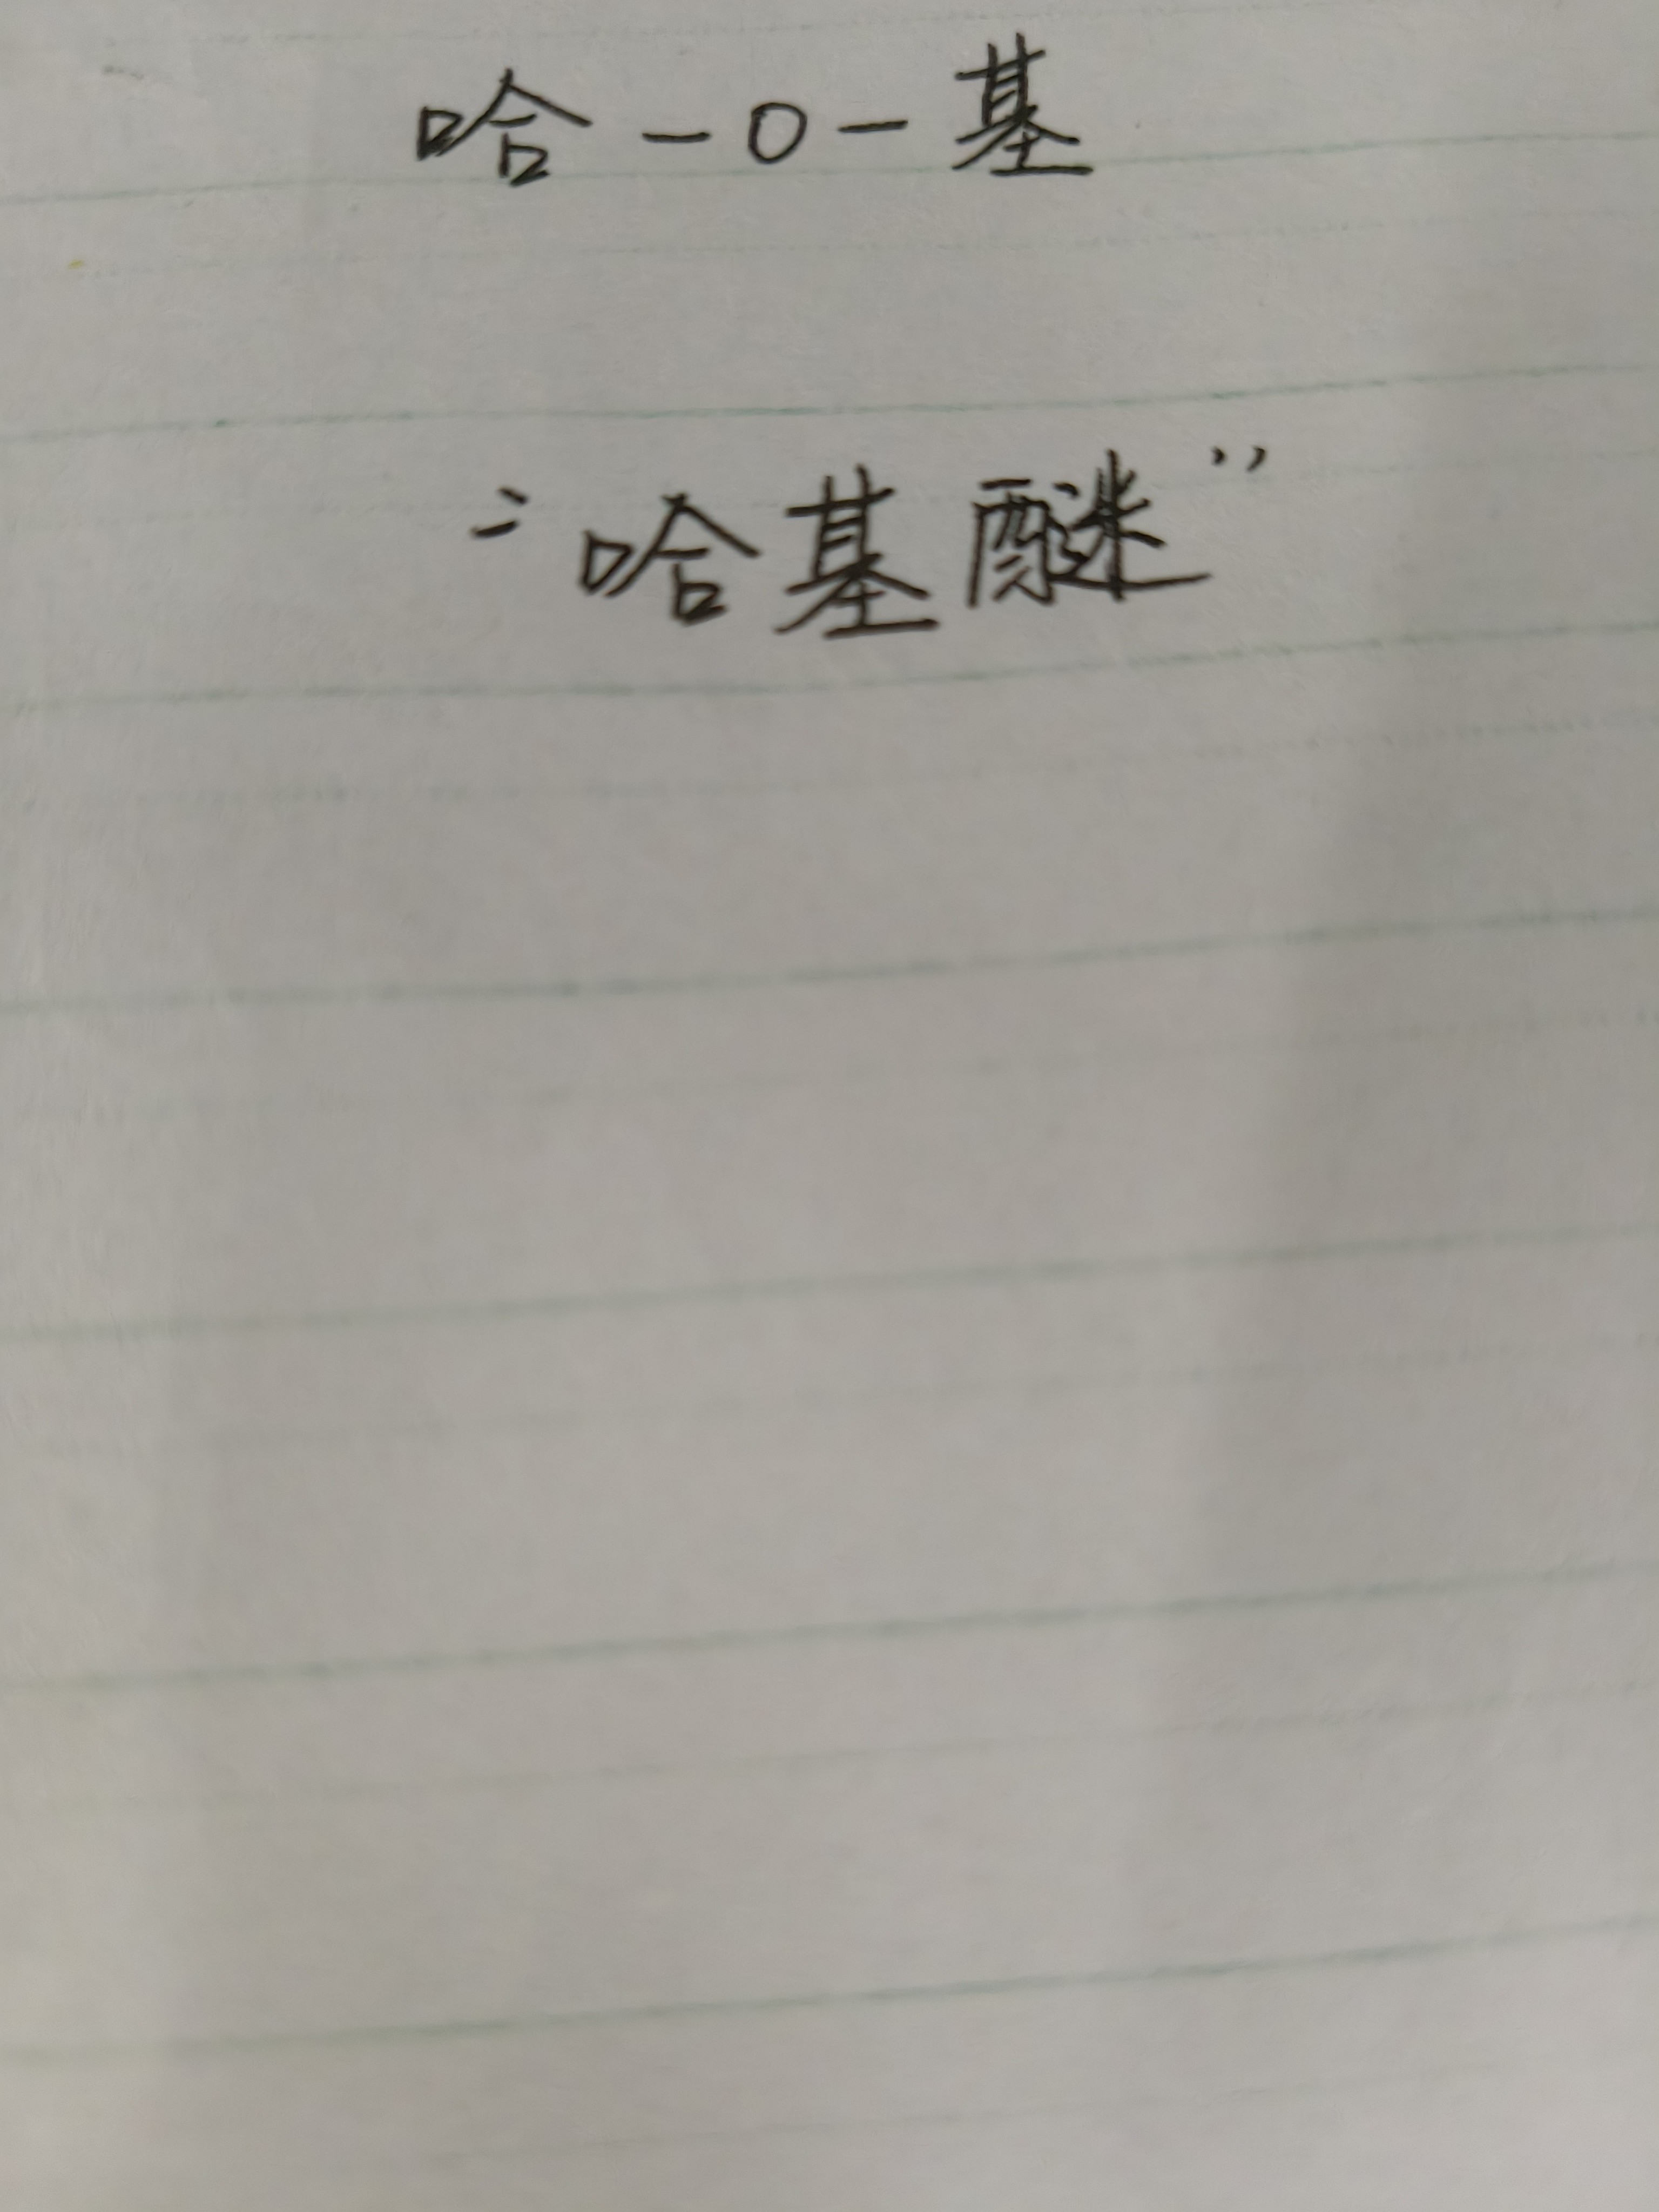 哈-O-基
“哈基醚”